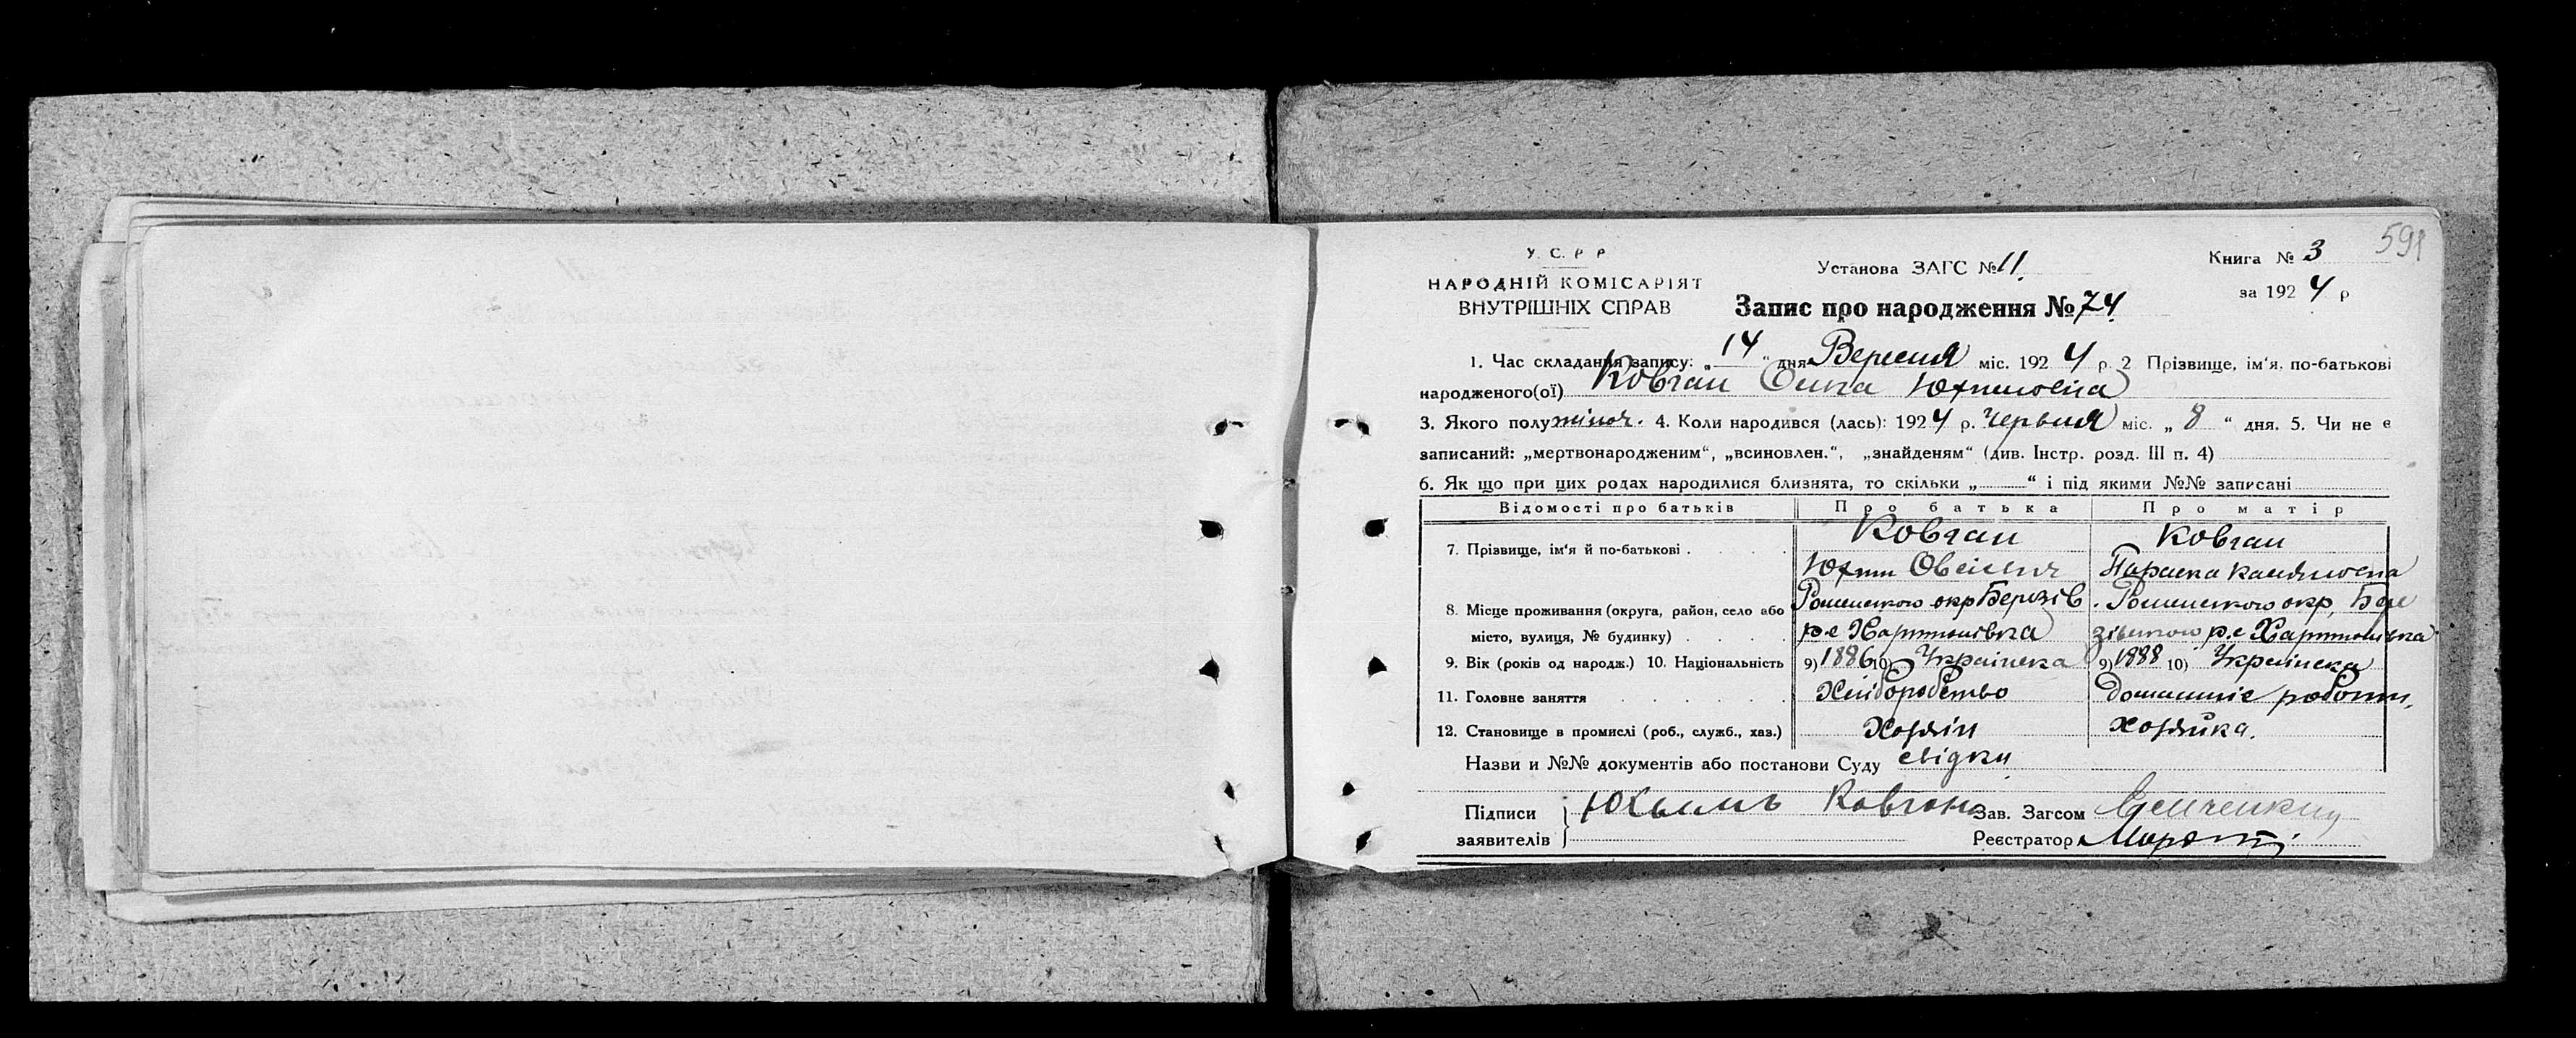 591
У. С. Р Р
НАРОДНІЙ КОМІСАРІЯТ
ВНУТРІШНІХ СПРАВ
Установа ЗАГС № 11.
Книга № 3
за 1924 р
Запис про народження № 74
1. Час складання запису: „ 14 “ дня Вересня міс. 1924 р. 2 Прізвище, ім‘я, по-батькові
народженого(ої) Ковган
3. Якого полу жіноч. 4. Коли народився (лась): 1924 р. Червня міс. „ 8 “ дня. 5. Чи не є
записаний: „мертвонародженим“, „всиновлен.“, „знайденям“ (див. Інстр. розд. III п. 4)
6. Як що при цих родах народилися близнята, то скільки „ “ і під якими №№ записані
Відомості про батьків Про батька Про матір
7. Прізвище, ім‘я й по-батькові . Ковган Ковган
Юхим Овсієвич Параска
8. Місце проживання (округа, район, село або Роменського окр Березів . Роменського окр, Бере
місто, вулиця, № будинку) . р-е Хартонівка зівського р.е Хартонівка
9. Вік (років од народж.) 10. Національність 9) 1886 10) Українська 9) 1888 10) Українська
11. Головне заняття Хліборобство Домашніе роботи,
12. Становище в промислі (роб., служб., хаз.) Хозяін хозяйка.
Назви и №№ документів або постанови Суду свідки
Підписи заявителів Юхымъ Ковган Зав. Загсом
Реєстратор